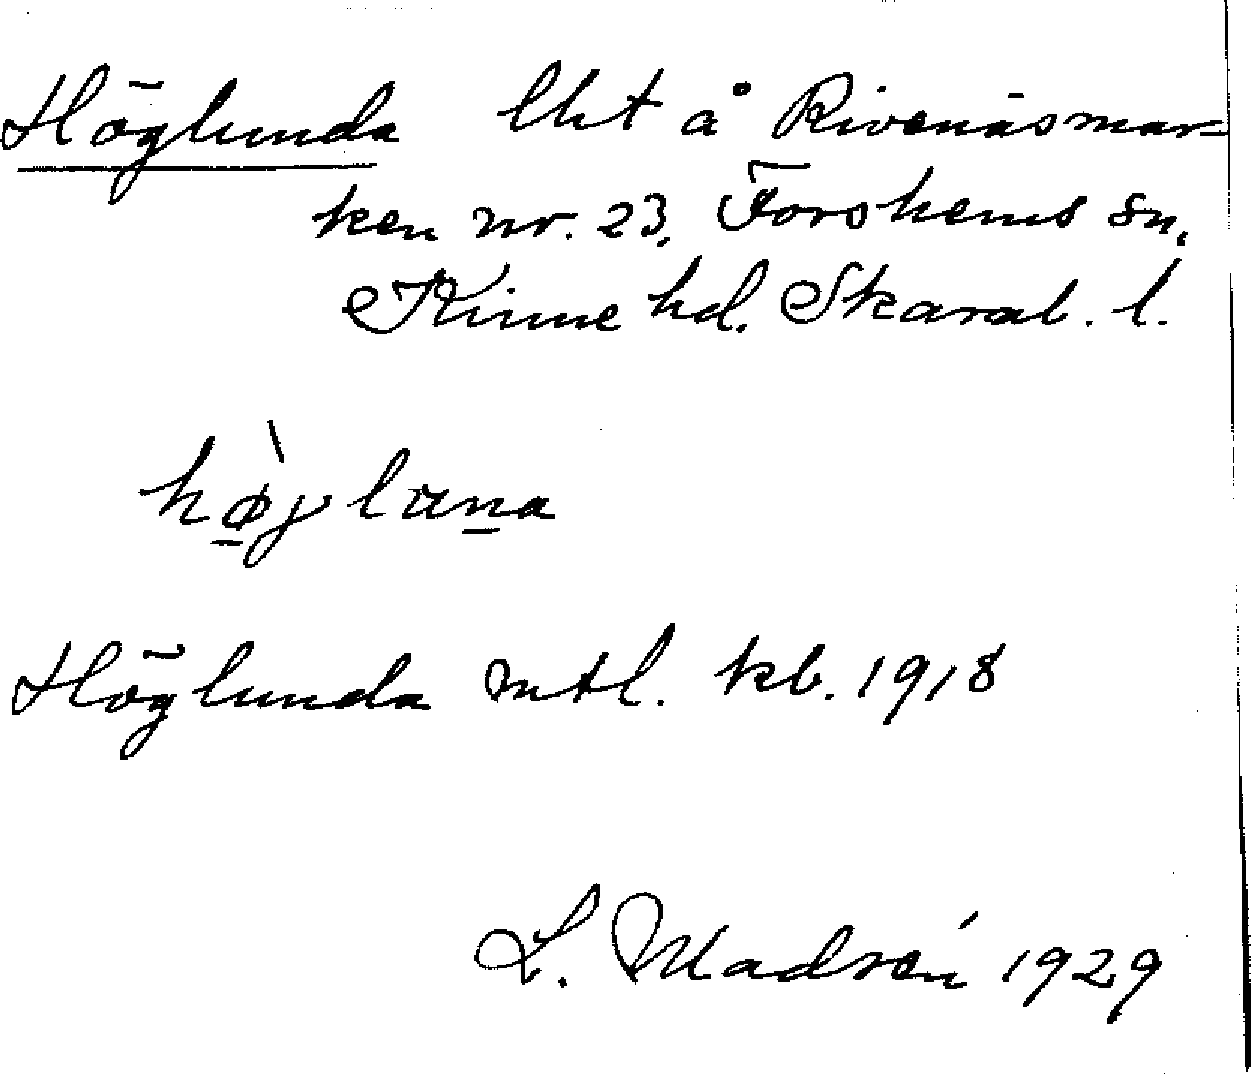 Höglunda lht å Rivenäsmar-
ken nr. 23, Forshems sn,
Kinne hd. Skarab. l.
hø̠̀γlαn̠a
Höglunda mtl. kb. 1918
L. Madsén 1929